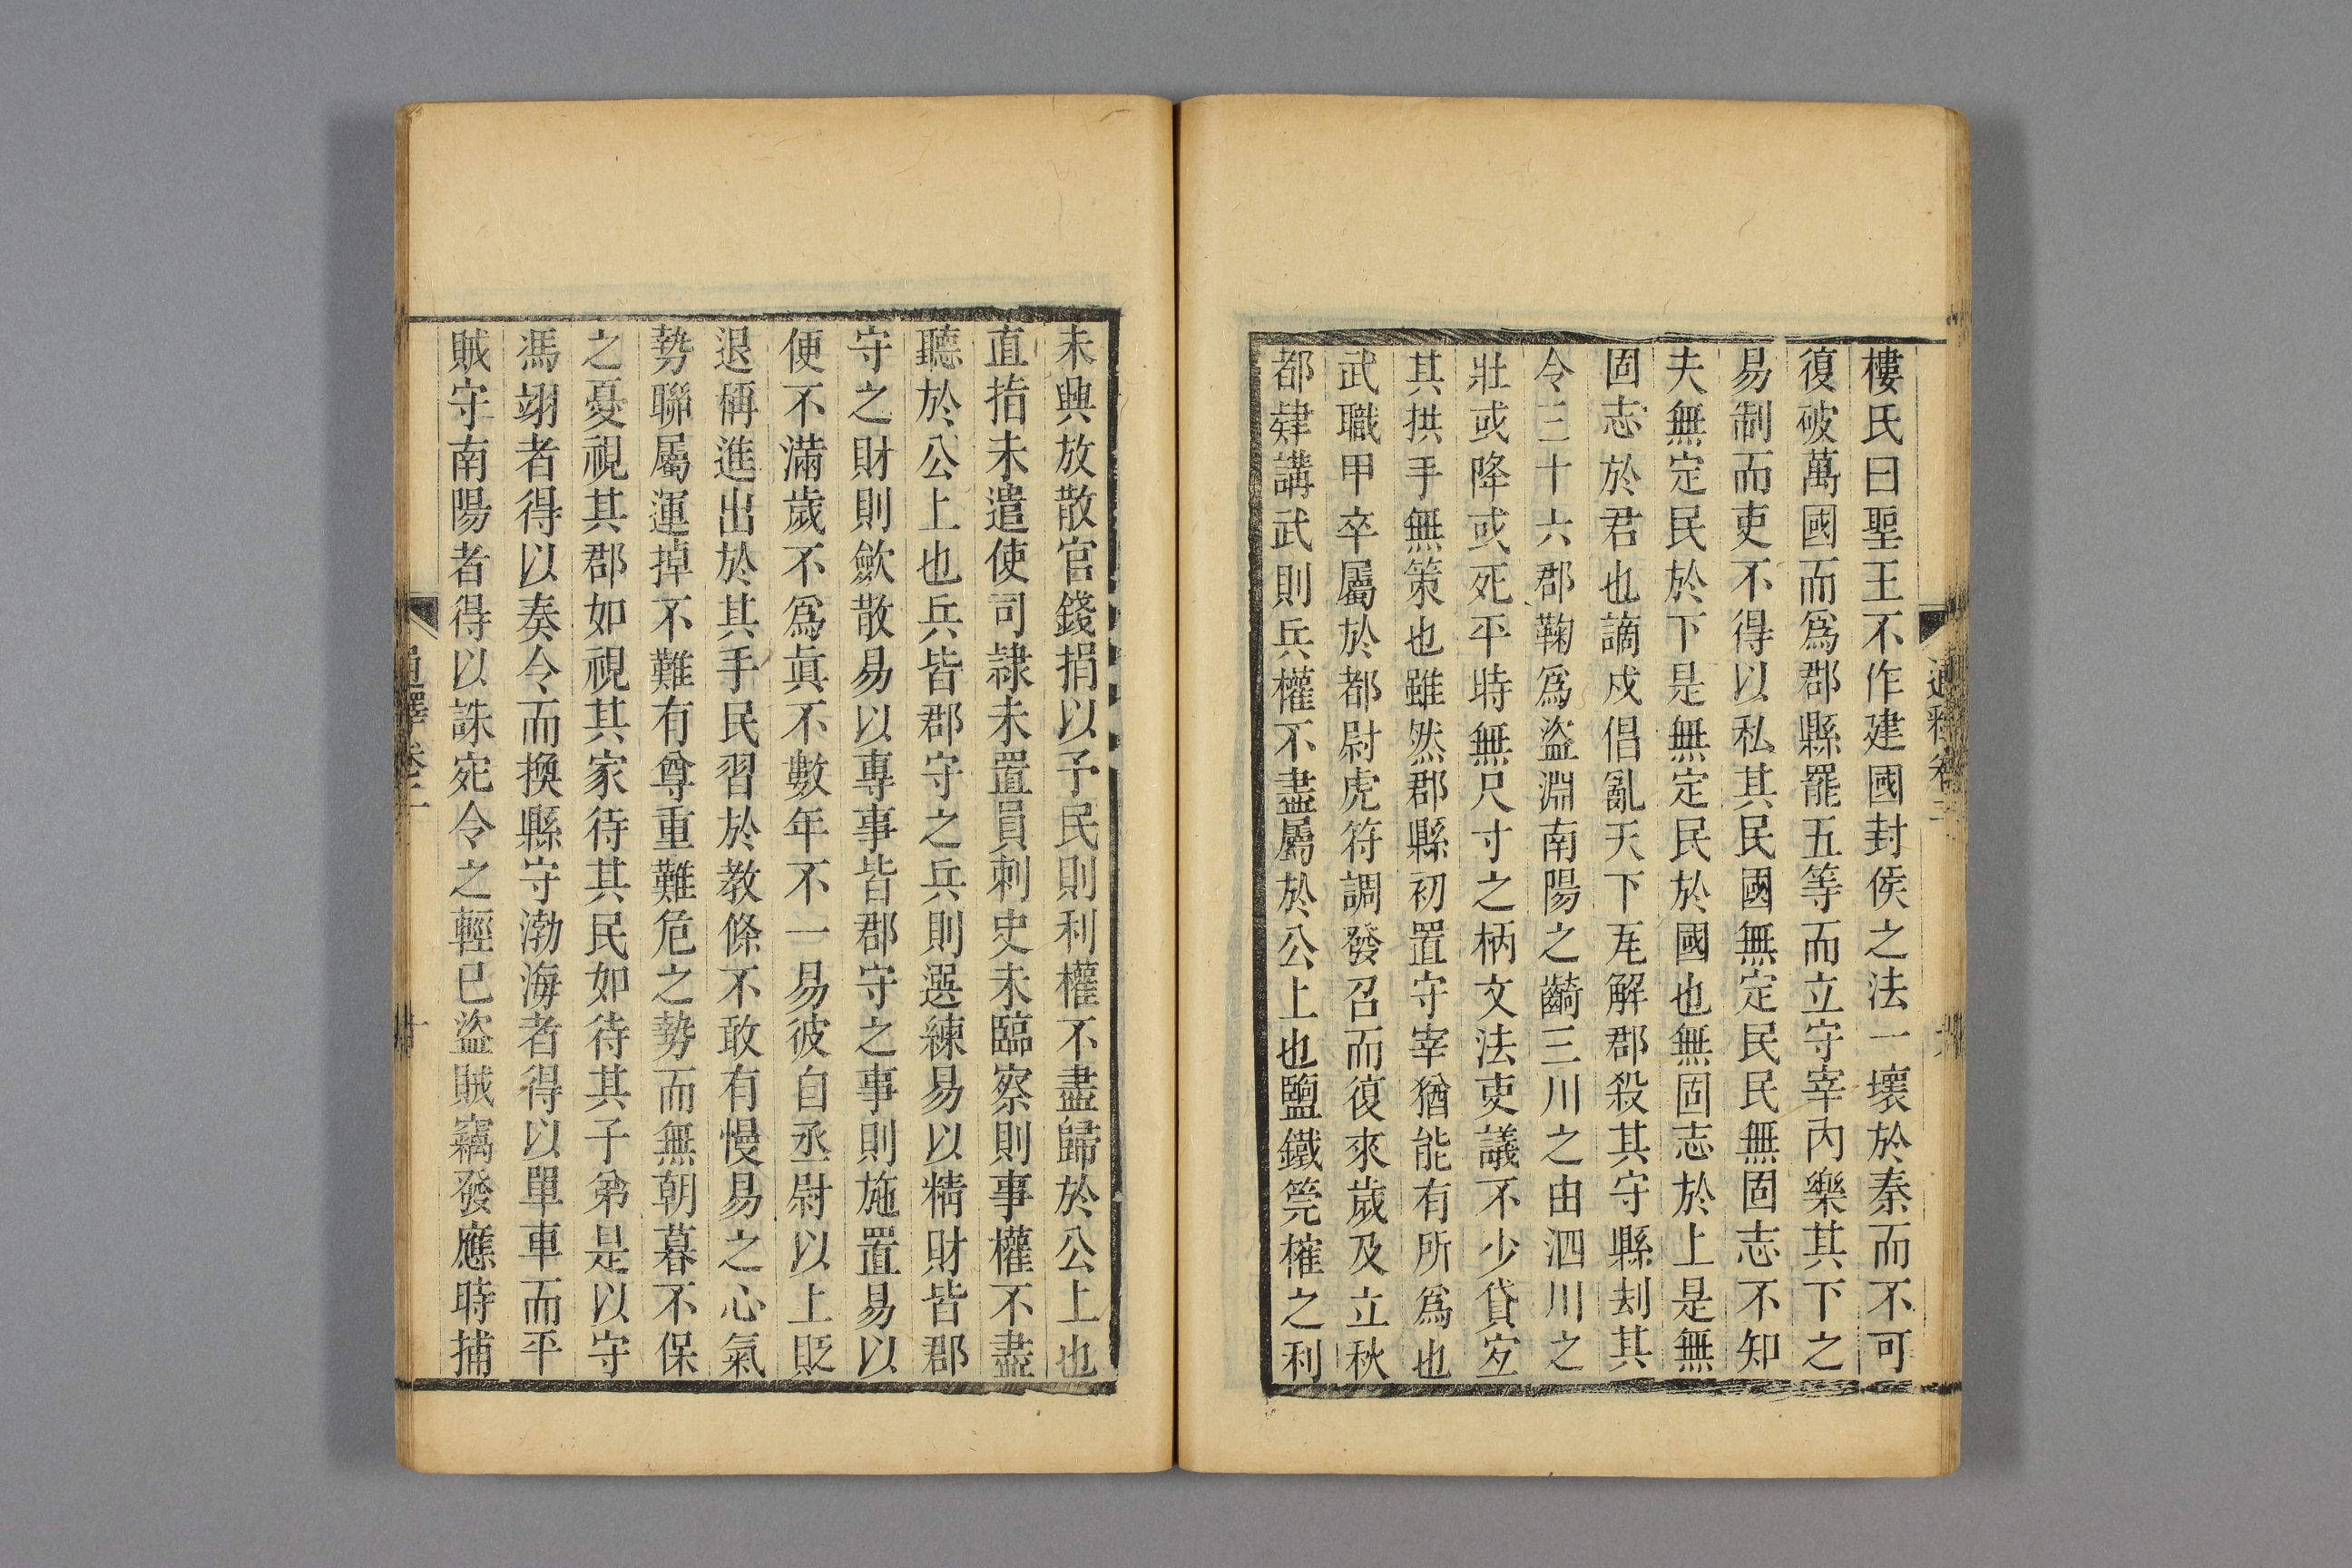 樓氏曰聖王不作建國封侯之法一壞於秦而不可
復破萬國而爲郡縣罷五等而立守宰内樂其下之
易制而吏不得以私其民國無定民民無固志不知
夫無定民於下是無定民於國也無固志於上是無
固志於君也謫戍倡亂天下瓦解郡殺其守縣刦其
令三十六郡鞠爲盜淵南陽之齮三川之由泗川之
壯或降或死平時無尺寸之柄文法吏議不少貸宐
其拱手無策也雖然郡縣初置守宰猶能有所爲也
武職甲卒屬於都尉虎符調發召而復來歲及立秋
都肄講武則兵權不盡屬於公上也鹽鐵筦榷之利
未興放散官錢捐以予民則利權不盡歸於公上也
直指未遣使司隷未置員刺史未臨察則事權不盡
聽於公上也兵皆郡守之兵則選練易以精財皆郡
守之財則歛散易以專事皆郡守之事則施置易以
便不滿歲不爲眞不數年不一易彼自丞尉以上貶
退稱進出於其手民習於教條不敢有慢易之心氣
勢聯屬運掉不難有尊重難危之勢而無朝暮不保
之憂視其郡如視其家待其民如待其子弟是以守
馮翊者得以奏令而換縣守渤海者得以單車而平
賊守南陽者得以誅宛令之輕已盜賊竊發應時捕
通釋卷三